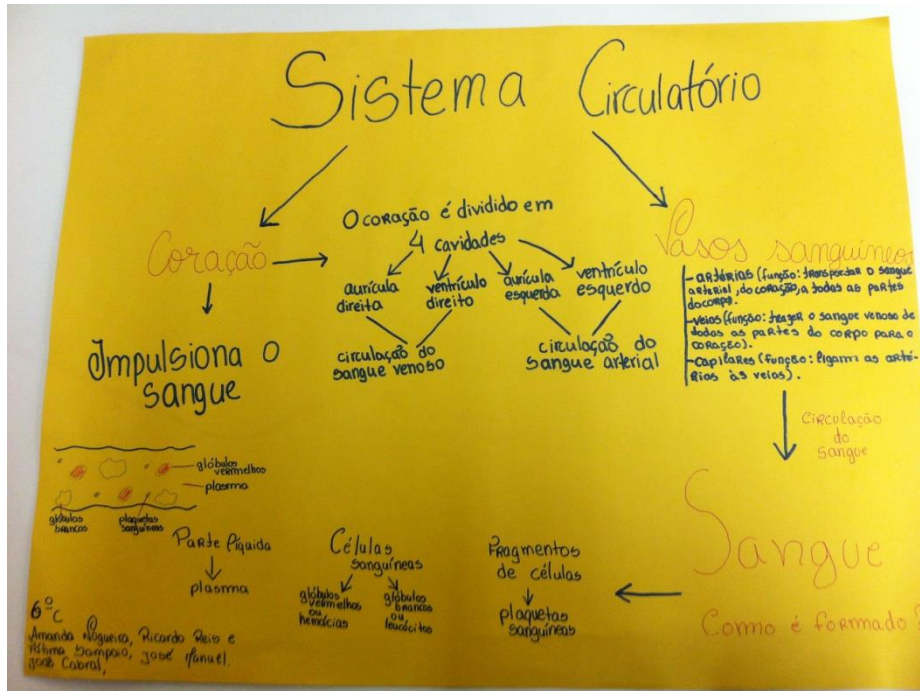 Sistema Circulatório
Coração
Impulsiona o
sangue
O coração é dividido em
4 cavidades
aurícula
direita
ventrículo
direito
aurícula
esquerda
ventrículo
esquerdo
circulação do
sangue venoso
circulação do
sangue arterial
Vasos sanguíneos
- artérias (função: transportar o sangue
arterial, do coração, a todas as partes
do corpo.
- veias (função: trazer o sangue venoso de
todas as partes do corpo para o
coração).
- capilares (função: ligarm as arté-
rias às veias).
circulação
do
sangue
Sangue
Como é formado?
Fragmentos
de células
plaquetas
sanguíneas
Células
sanguíneas
glóbulos
vermelhos
ou
hemácias
glóbulos
brancos
ou
leucócitos
glóbulos
vermelhos
plasma
glóbulos
brancos
plaquetas
sanguíneas
Parte líquida
plasma
6º C
Amanda Nogueira, Ricardo Reis e
Fátima Sampaio, José Manuel.
João Cabral,